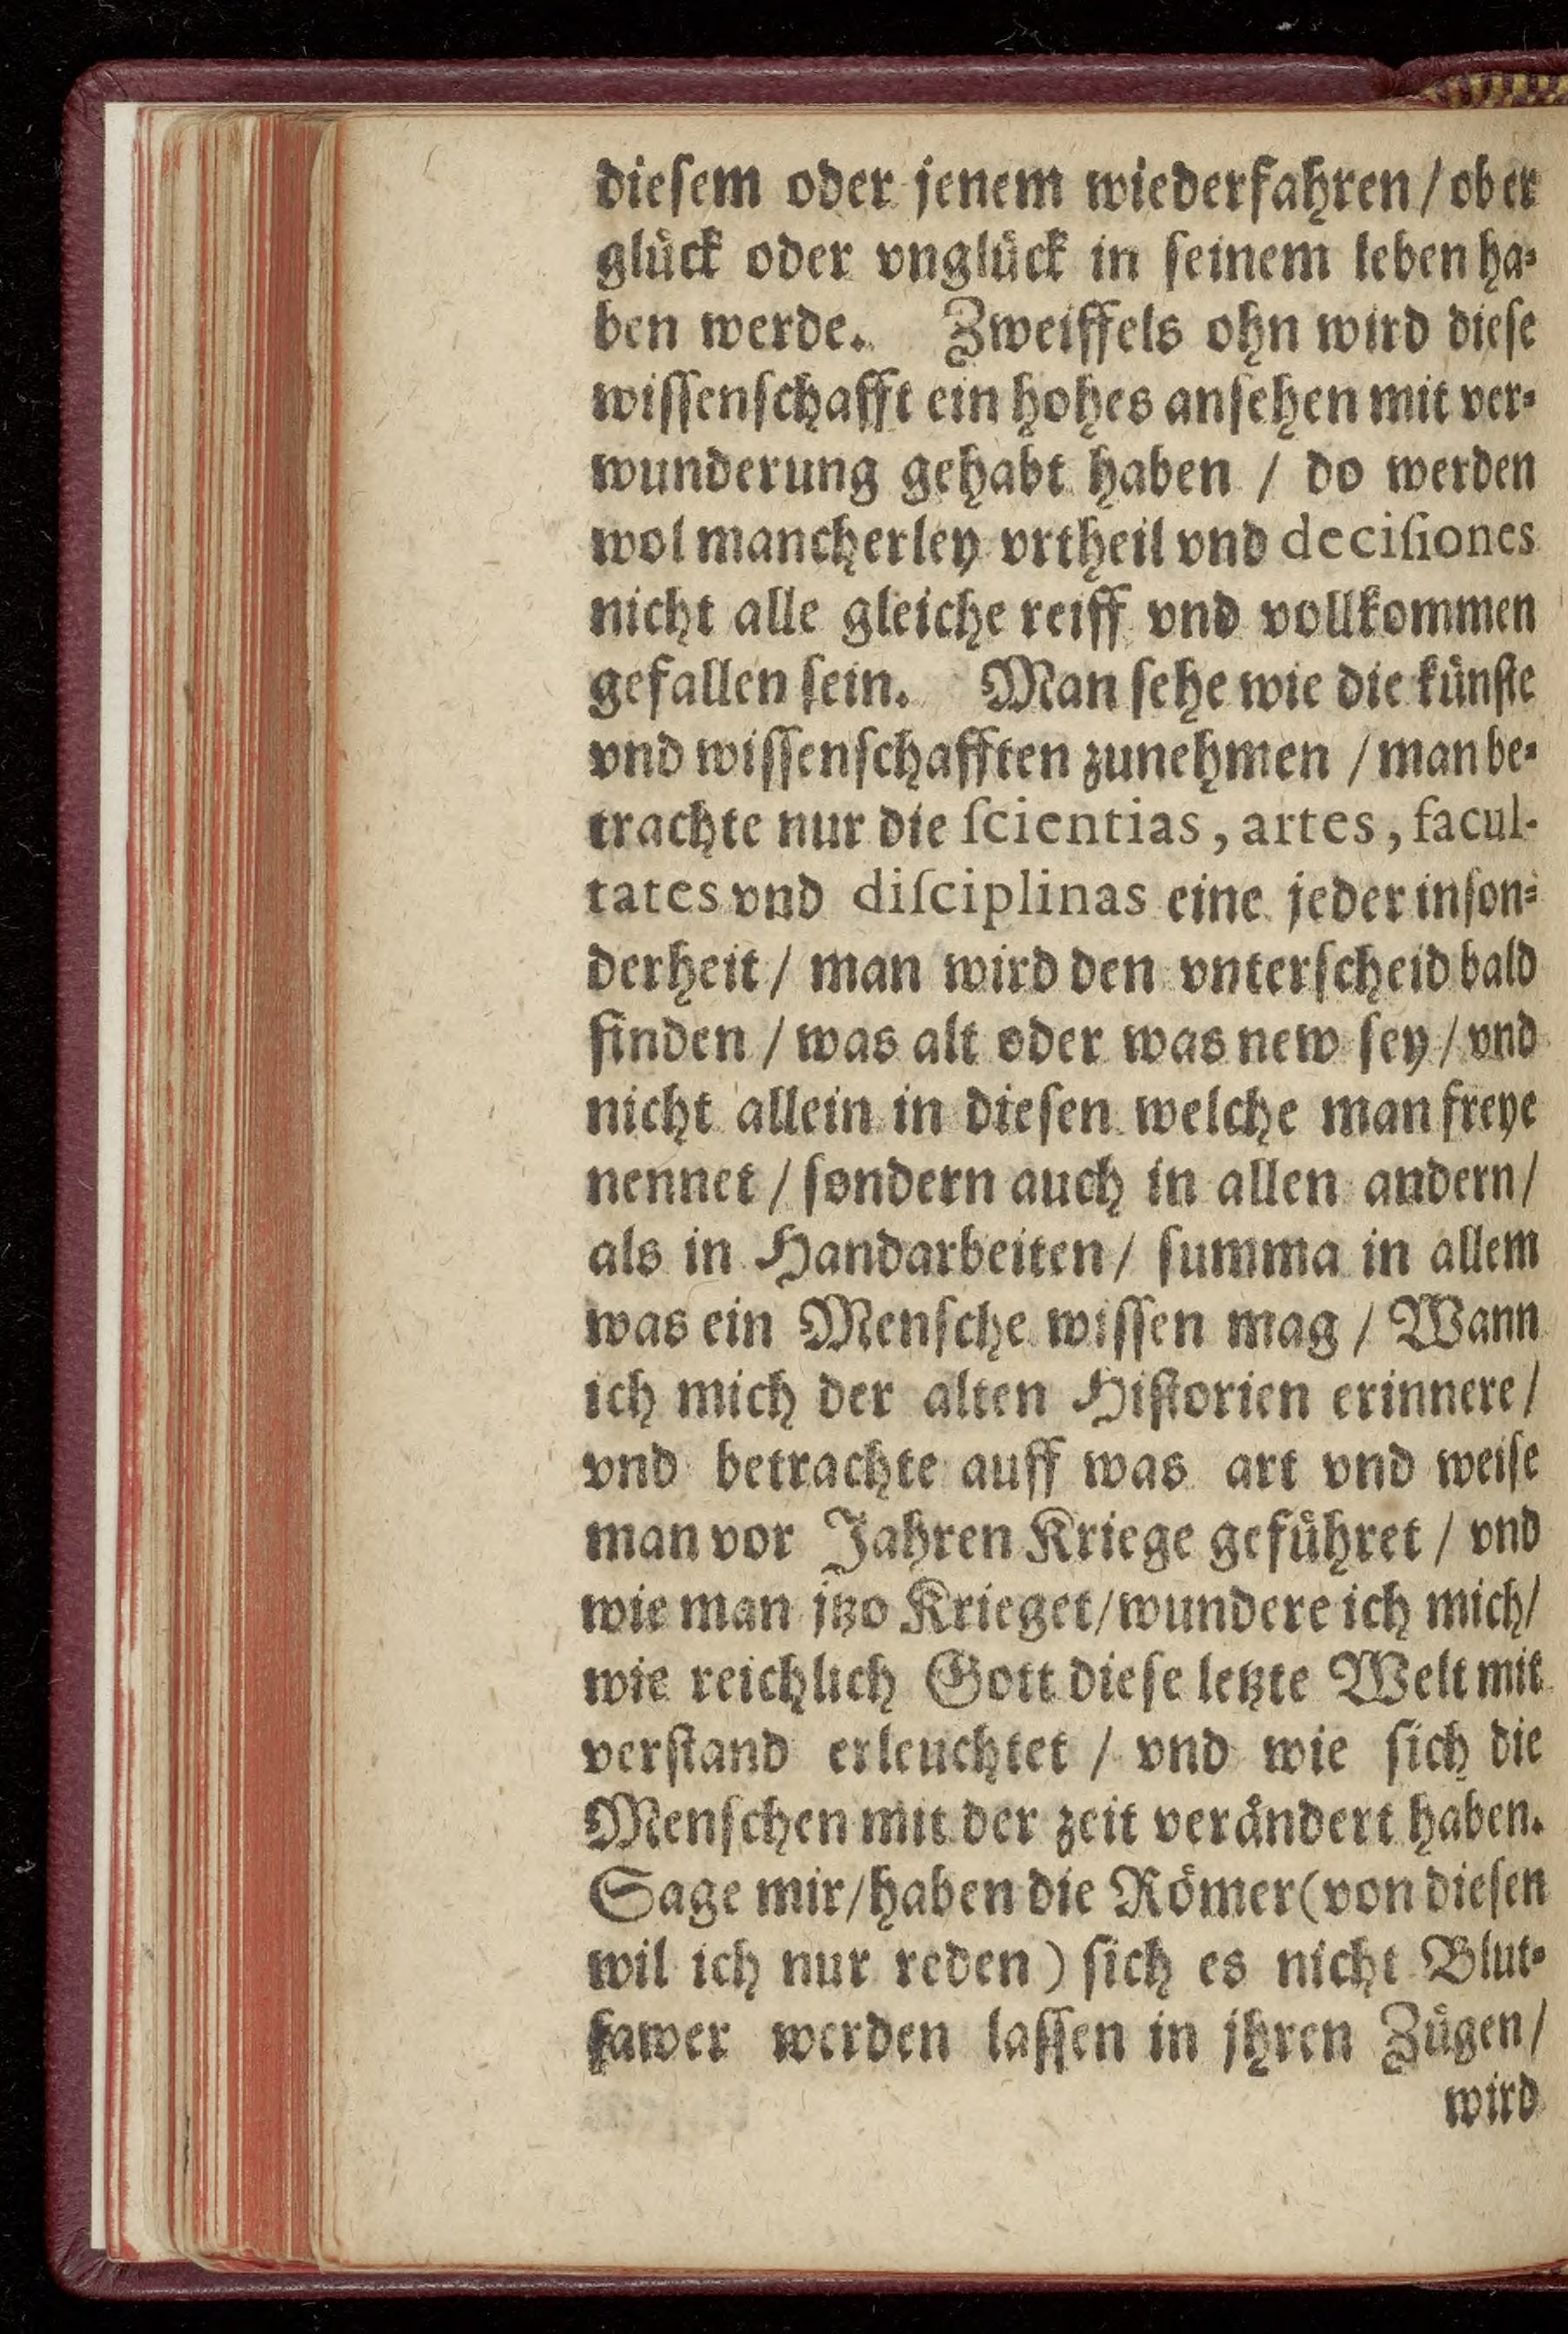 dieſem oder jenem wiederfahren / ob er
gluͤck oder vngluͤck in ſeinem leben ha-
ben werde. Zweiffels ohn wird dieſe
wiſſenſchafft ein hohes anſehen mit ver-
wunderung gehabt haben / do werden
wol mancherley vrtheil vnd deciſiones
nicht alle gleiche reiff vnd vollkommen
gefallen ſein. Man ſehe wie die kuͤnſte
vnd wiſſenſchafften zunehmen / man be-
trachte nur die ſcientias, artes, facul-
tates vnd diſciplinas eine jeder inſon-
derheit / man wird den vnterſcheid bald
finden / was alt oder was new ſey / vnd
nicht allein in dieſen welche man freye
nennet / ſondern auch in allen andern /
als in Handarbeiten / ſumma in allem
was ein Menſche wiſſen mag / Wann
ich mich der alten Hiſtorien erinnere /
vnd betrachte auff was art vnd weiſe
man vor Jahren Kriege gefuͤhret / vnd
wie man jtzo Krieget / wundere ich mich /
wie reichlich Gott dieſe letzte Welt mit
verſtand erleuchtet / vnd wie ſich die
Menſchen mit der zeit veraͤndert haben.
Sage mir / haben die Roͤmer (von dieſen
wil ich nur reden) ſich es nicht Blut-
ſawer werden laſſen in jhren Zuͤgen /
wird